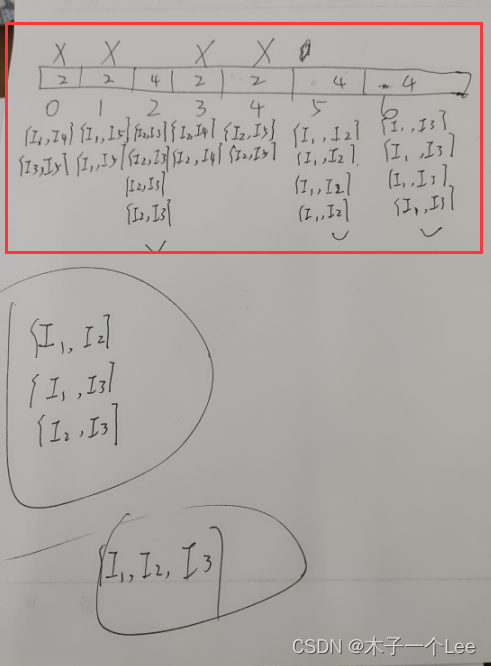 X X X X
2 2 4 2 2 4 4
0 1 2 3 4 5 6
{I1,I4} {I1,I5} {I2,I3} {I2,I4} {I2,I5} {I1,I2} {I1,I3}
{I3,I5} {I1,I5} {I2,I3} {I2,I4} {I2,I5} {I1,I2} {I1,I3}
{I2,I3} {I1,I2} {I1,I3}
{I2,I3} {I1,I2} {I1,I3}
{I1,I2}
{I1,I3}
{I2,I3}
{I1,I2,I3}
CSDN @木子一个Lee